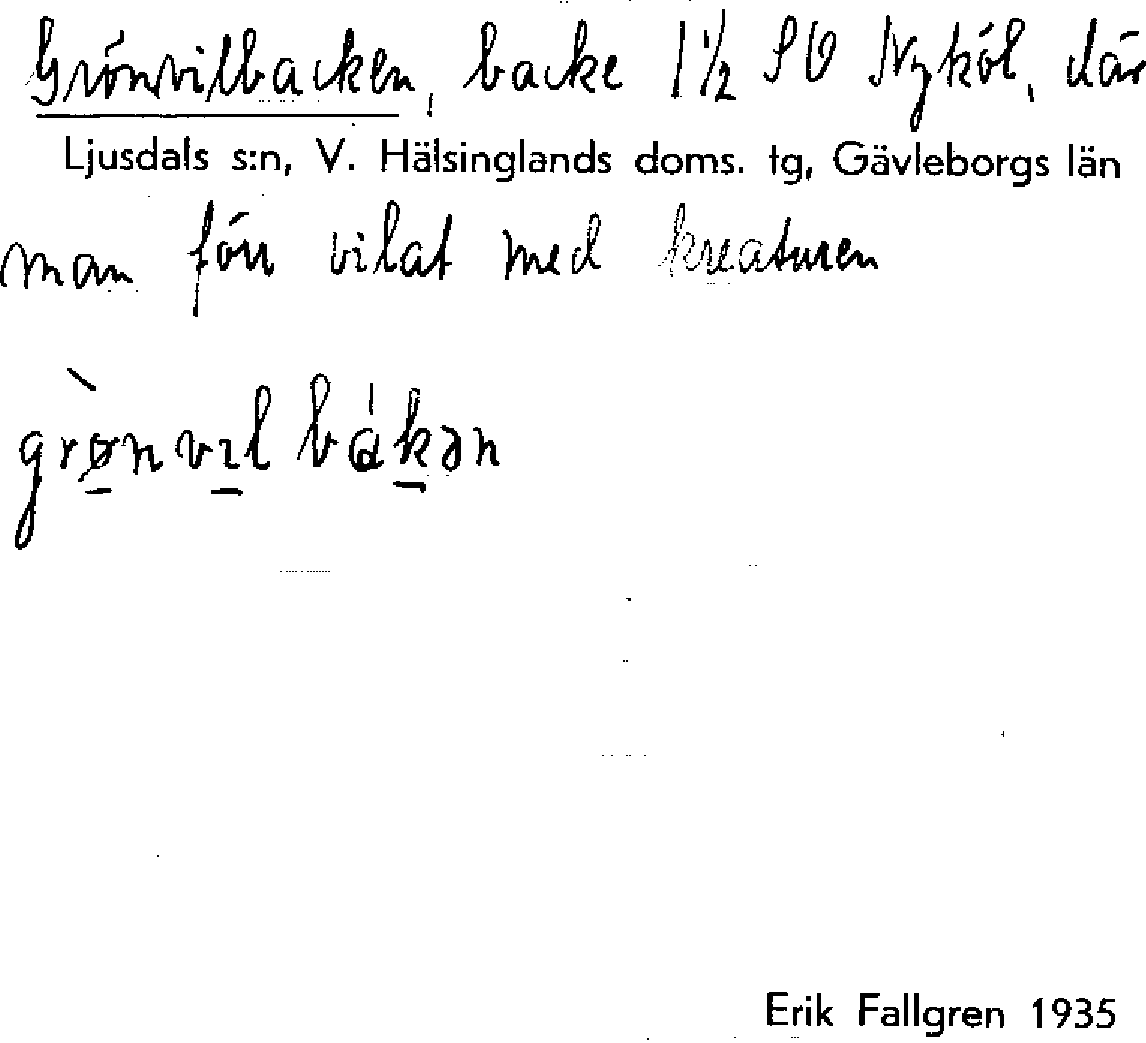 Grönvilbacken, backe 1 1/2 SV Nyköl, där
Ljusdals s:n, V. Hälsinglands doms. tg, Gävleborgs län
man förr vilat med kreaturen
grø̀nvɪl bákən
Erik Fallgren 1935